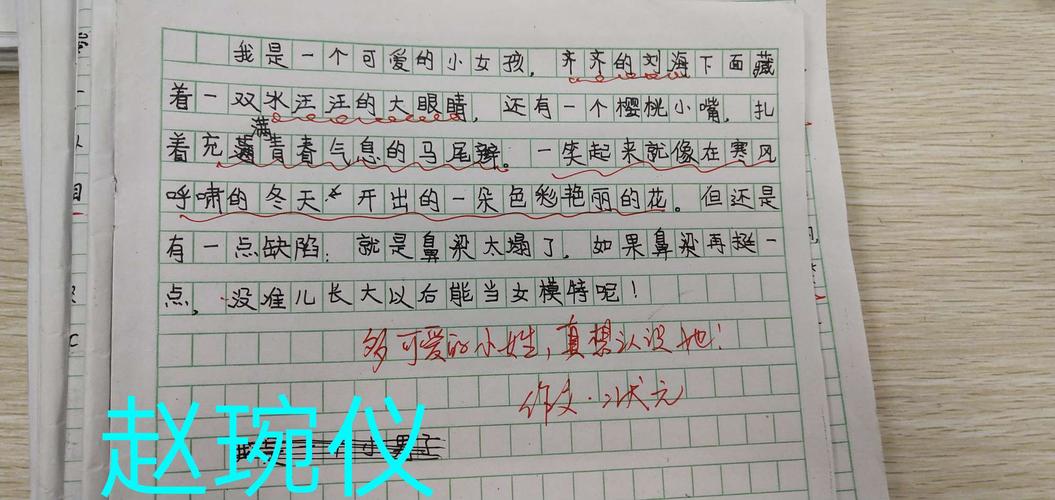 我是一个可爱的小女孩，齐齐的刘海下面藏
着一双水汪汪的大眼睛，还有一个樱桃小嘴，扎
着充满青春气息的马尾辫。一笑起来就像在寒风
呼啸的冬天开出的一朵色彩艳丽的花。但还是
有一点缺陷：就是鼻梁太塌了，如果鼻梁再挺一
点，没准儿长大以后能当女模特呢！
多可爱的小姓，真想认识她！
作文·小状元
赵琬仪